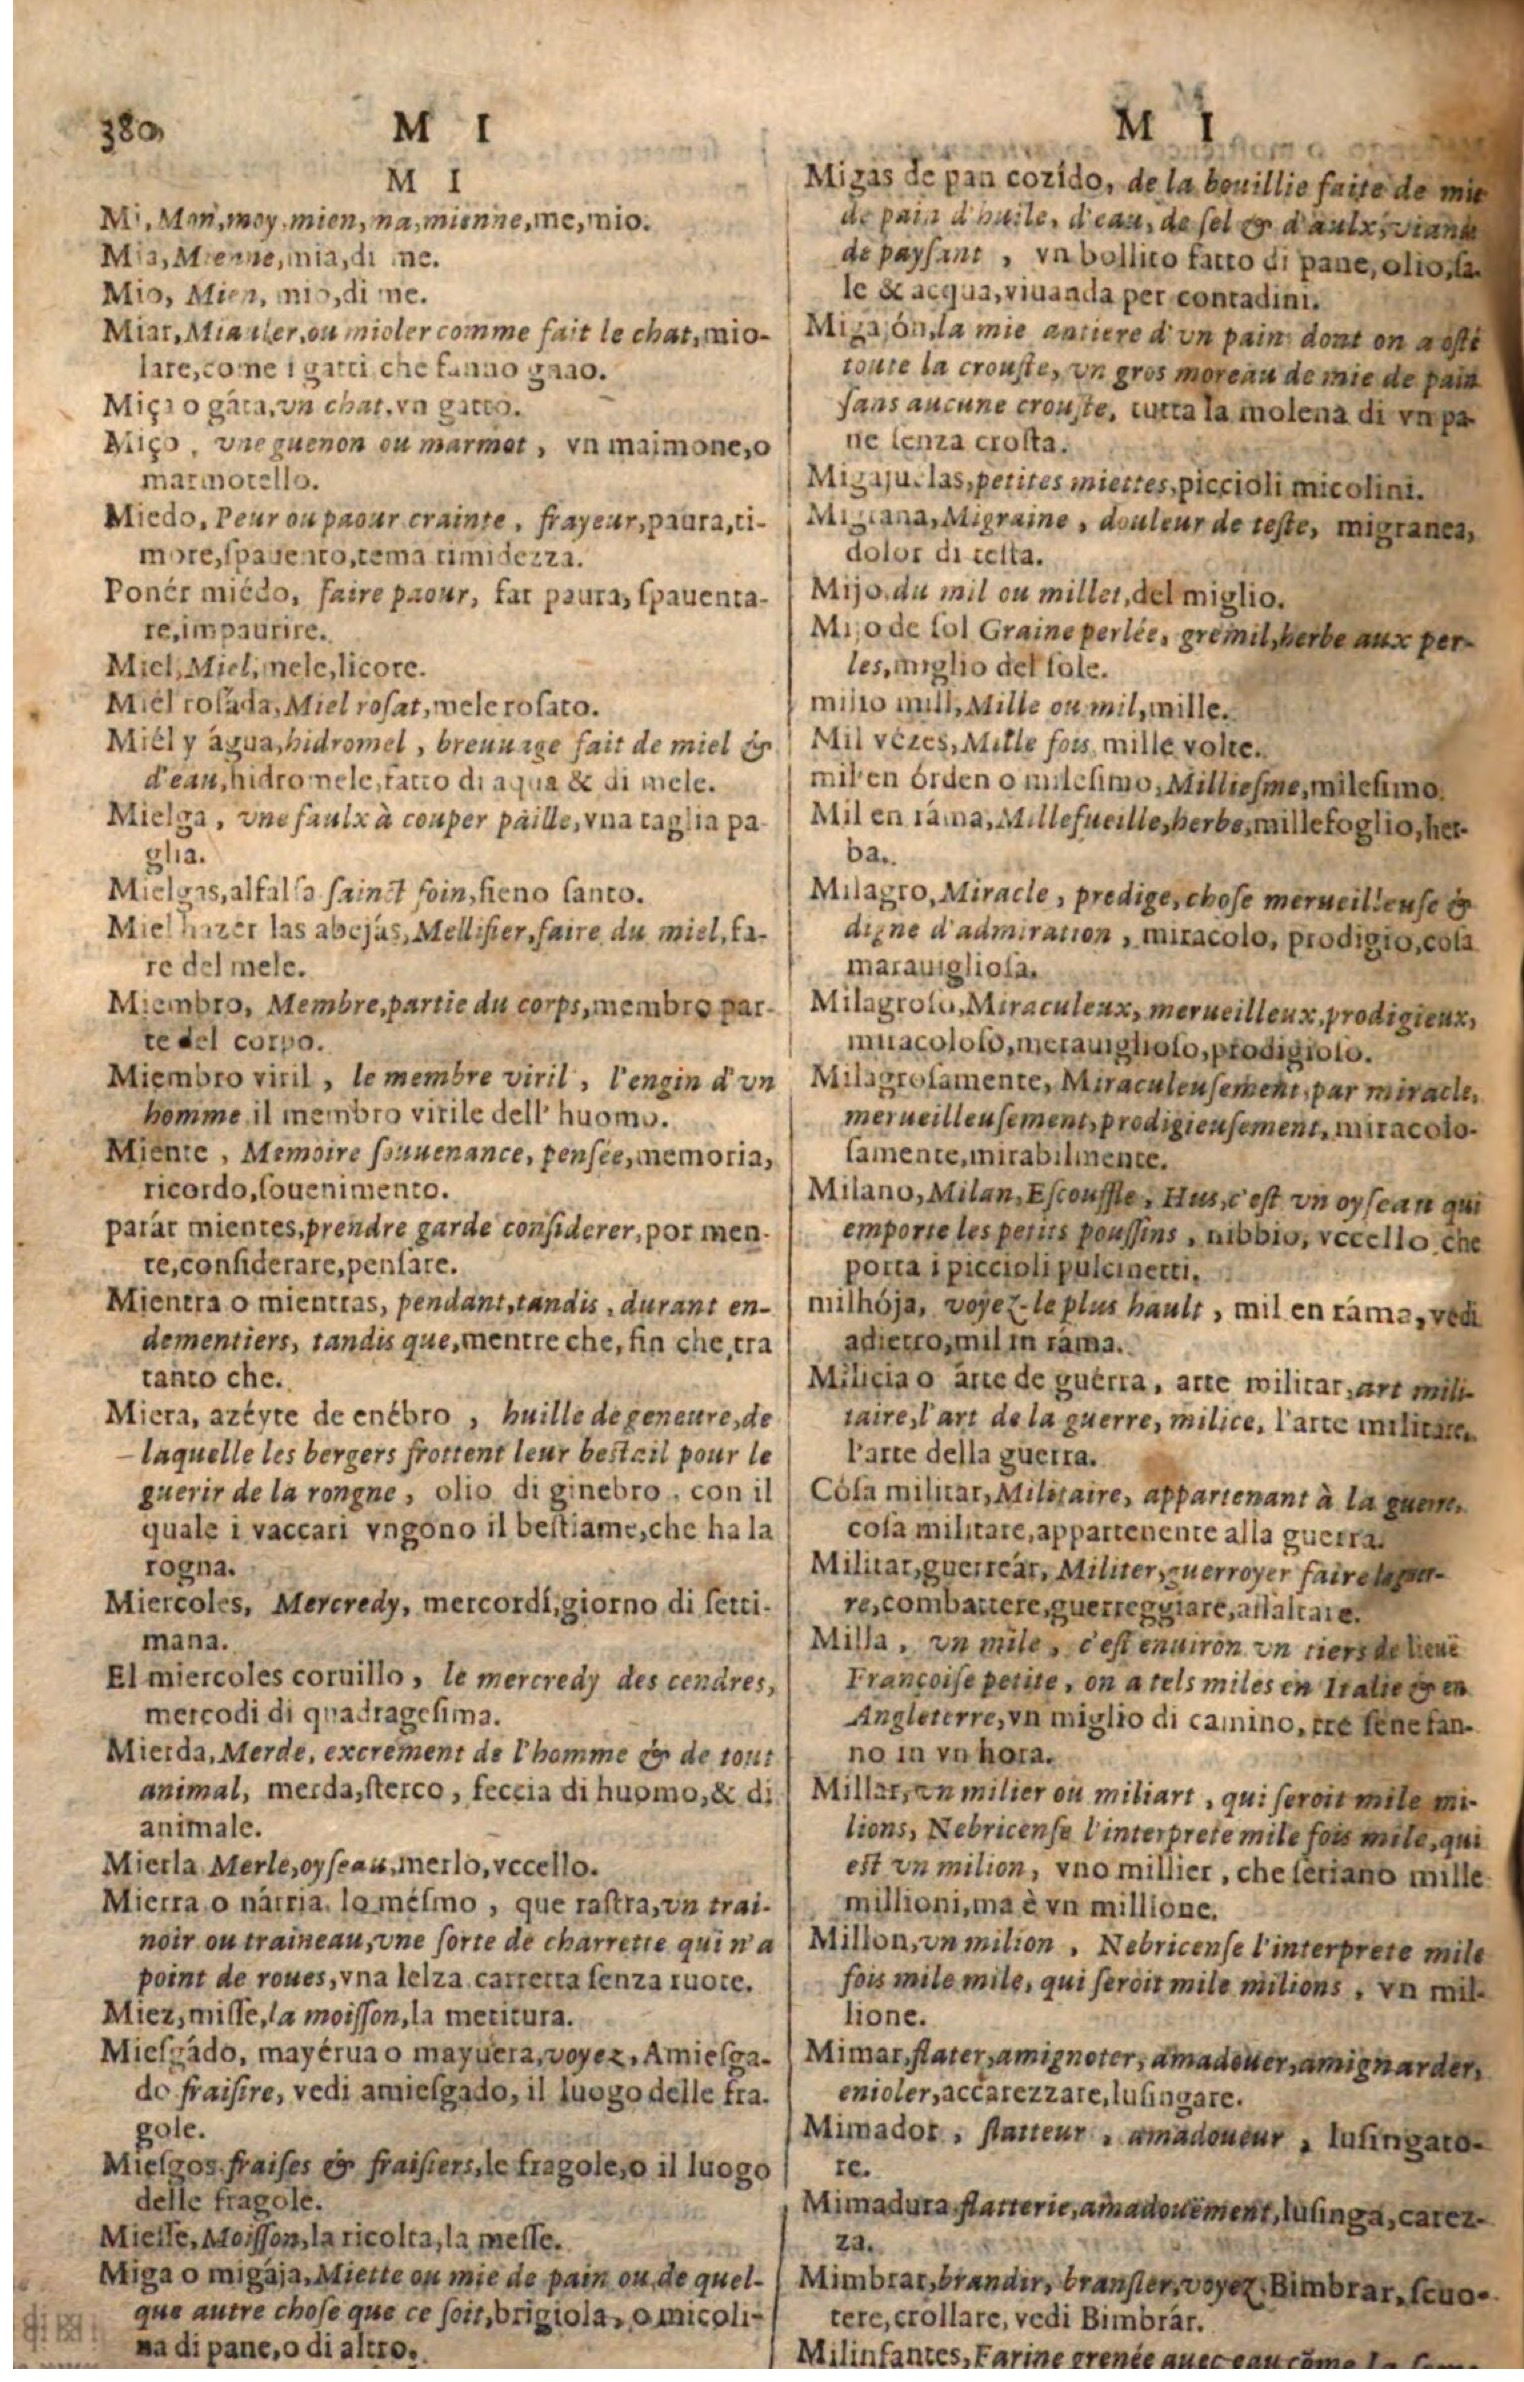 380 M I
M I
Mi, Mon, moy, mien, ma, mienne, me, mio.
Mia, Mienne, mia, di me.
Mio, Mien, mio, di me.
Miar, Miauler, ou mioler comme fait le chat, mio-
lare, come i gatti che fanno gnao.
Miça o gáta, vn chat, vn gatto.
Miço, vne guenon ou marmot, vn maimone, o
marmotello.
Miedo, Peur ou paour crainte, frayeur, paura, ti-
more, ſpauento, tema timidezza.
Ponér miédo, faire paour, far paura, ſpauenta-
re, impaurire.
Miel, Miel, mele, licore.
Miel roſáda, Miel roſat, mele roſato.
Miél y água, hidromel, breuuage fait de miel &
d'eau, hidromele, fatto di aqua & di mele.
Mielga, vne faulx à couper paille, vna taglia pa-
glia.
Mielgas, alfalſa ſainct foin, fieno ſanto.
Miel hazer las abejás, Mellifier, faire du miel, fa-
re del mele.
Miembro, Membre, partie du corps, membro par-
te del corpo.
Miembro viril, le membre viril, l'engin d'vn
homme il membro virile dell' huomo.
Miente, Memoire ſouuenance, penſée, memoria,
ricordo, ſouenimento.
parár mientes, prendre garde conſiderer, por men-
te, conſiderare, penſare.
Mientra o mientras, pendant, tandis, durant en-
dementiers, tandis que, mentre che, fin che, tra
tanto che.
Miera, azéyte de enébro, huille de geneure, de
laquelle les bergers frottent leur beſtail pour le
guerir de la rongne, olio di ginebro, con il
quale i vaccari vngono il beſtiame, che ha la
rogna.
Miercoles, Mercredy, mercordí, giorno di ſetti-
mana.
El miercoles coruillo, le mercredy des cendres,
mercodi di quadrageſima.
Mierda, Merde, excrement de l'homme & de tout
animal, merda, ſterco, feccia di huomo, & di
animale.
Mierla Merle, oyſeau, merlo, vccello.
Mierra o nárria. lo méſmo, que raſtra, vn trai-
noir ou traineau, vne ſorte de charrette qui n'a
point de roues, vna lelza carretta ſenza ruote.
Miez, miſſe, la moiſſon, la metitura.
Mieſgádo, mayérua o mayuera, voyez, Amieſga-
do fraiſire, vedi amieſgado, il luogo delle fra-
gole.
Mieſgos fraiſes & fraiſiers, le fragole, o il luogo
delle fragole.
Mieſſe, Moiſſon, la ricolta, la meſſe.
Miga o migája, Miette ou mie de pain ou de quel-
que autre choſe que ce ſoit, brigiola, o micoli-
na di pane, o di altro.
M I
Migas de pan cozído, de la bouillie faite de mie
de pain d'huile, d'eau, de ſel & d'aulx, viande
de payſant, vn bollito fatto di pane, olio, ſa-
le & acqua, viuanda per contadini.
Migajón, la mie antiere d'vn pain dont on a oſté
toute la crouſte, vn gros moreau de mie de pain
ſans aucune crouſte, tutta la molena di vn pa-
ne ſenza croſta.
Migajuelas, petites miettes, piccioli micolini.
Migrana, Migraine, douleur de teſte, migranea,
dolor di teſta.
Mijo, du mil ou millet, del miglio.
Mijo de ſol Graine perlée, gremil, herbe aux per-
les, miglio del ſole.
milio mill, Mille ou mil, mille.
Mil vézes, Mille fois, mille volte.
mil'en órden o mileſimo, Millieſme, mileſimo.
Mil en ráma, Millefueille, herbe, millefoglio, her-
ba.
Milagro, Miracle, predige, choſe merueilleuſe &
digne d'admiration, miracolo, prodigio, coſa
marauiglioſa.
Milagroſo, Miraculeux, merueilleux, prodigieux,
miracoloſo, merauiglioſo, prodigioſo.
Milagroſamente, Miraculeuſement, par miracle,
merueilleuſement, prodigieuſement, miracolo-
ſamente, mirabilmente.
Milano, Milan, Eſcouffle, Hus, c'eſt vn oyſeau qui
emporte les petits pouſſins, nibbio, vccello che
porta i piccioli pulcinetti.
milhója, voyez-le plus hault, mil en ráma, vedi
adietro, mil in ráma.
Milicia o árte de guérra, arte militar, art mili-
taire, l'art de la guerre, milice, l'arte militare,
l'arte della guerra.
Cóſa militar, Militaire, appartenant à la guerre,
coſa militare, appartenente alla guerra.
Militar, guerreár, Militer, guerroyer faire la guer-
re, combattere, guerreggiare, aſſaltare.
Milla, vn mile, c'eſt enuiron vn tiers de lieuë
Françoiſe petite, on a tels miles en Italie & en
Angleterre, vn miglio di camino, tre ſene fan-
no in vn hora.
Millar, vn milier ou miliart, qui ſeroit mile mi-
lions, Nebricenſe l'interprete mile fois mile, qui
est vn milion, vno millier, che ſeriano mille
millioni, ma è vn millione.
Millon, vn milion, Nebricenſe l'interprete mile
fois mile mile, qui ſeroit mile milions, vn mil-
lione.
Mimar, flater, amignoter, amadouer, amignarder,
enioler, accarezzare, luſingare.
Mimador, flatteur, amadoueur, luſingato-
re.
Mimadura flatterie, amadouëment, luſinga, carez-
za.
Mimbrar, brandir, branſler, voyez, Bimbrar, ſcuo-
tere, crollare, vedi Bimbrár.
Milinfantes, Farine grenée auec eau cõme la